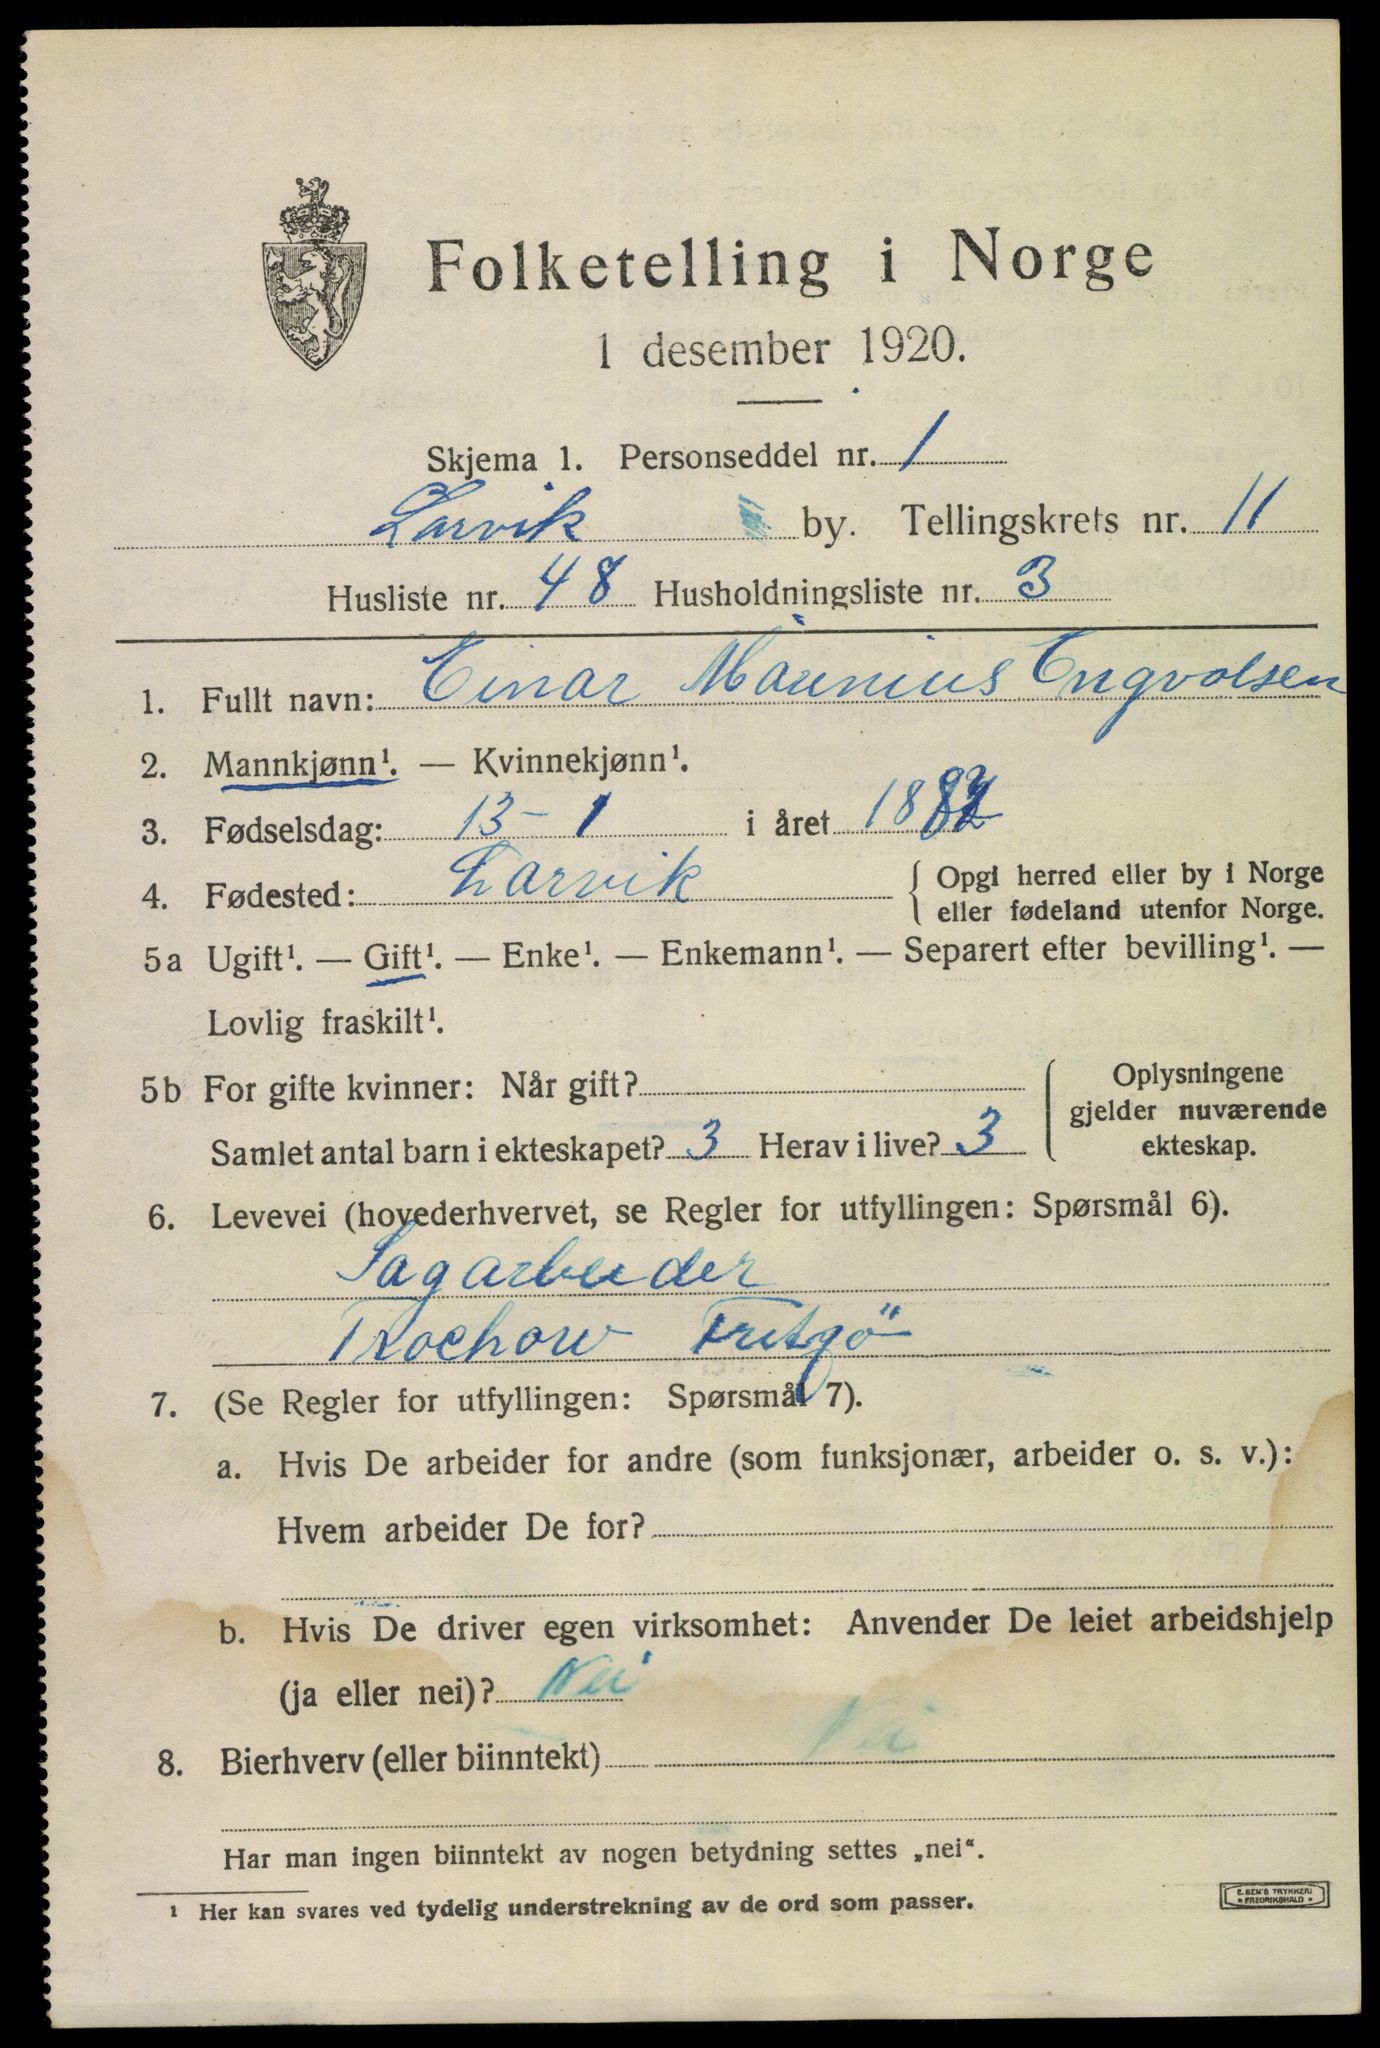 Folketelling i Norge
1 desember 1920.
Skjema 1. Personseddel nr. 1
Larvik by. Tellingskrets nr. 11
Husliste nr. 48 Husholdningsliste nr. 3
1. Fullt navn: Einar Maunius Engvolsen
2. Mannkjønn¹. — Kvinnekjønn¹.
3. Fødselsdag: 13-1 i året 188
4. Fødested: Larvik { Opgi herred eller by i Norge
eller fødeland utenfor Norge.
5a Ugift¹. — Gift¹. — Enke¹. — Enkemann¹. — Separert efter bevilling¹. —
Lovlig fraskilt¹.
5b For gifte kvinner: Når gift?
Samlet antal barn i ekteskapet? 3 Herav i live? 3
Oplysningene
gjelder nuværende
ekteskap.
6. Levevei (hovederhvervet, se Regler for utfyllingen: Spørsmål 6).
Sagarbeider
Fritzö
7. (Se Regler for utfyllingen: Spørsmål 7).
a. Hvis De arbeider for andre (som funksjonær, arbeider o. s. v.):
Hvem arbeider De for?
b. Hvis De driver egen virksomhet: Anvender De leiet arbeidshjelp
(ja eller nei)? Nei
8. Bierhverv (eller biinntekt) Nei
Har man ingen biinntekt av nogen betydning settes „nei“.
¹ Her kan svares ved tydelig understrekning av de ord som passer.
E. SEM'S TRYKKERI
• FREDRIKSHALD •